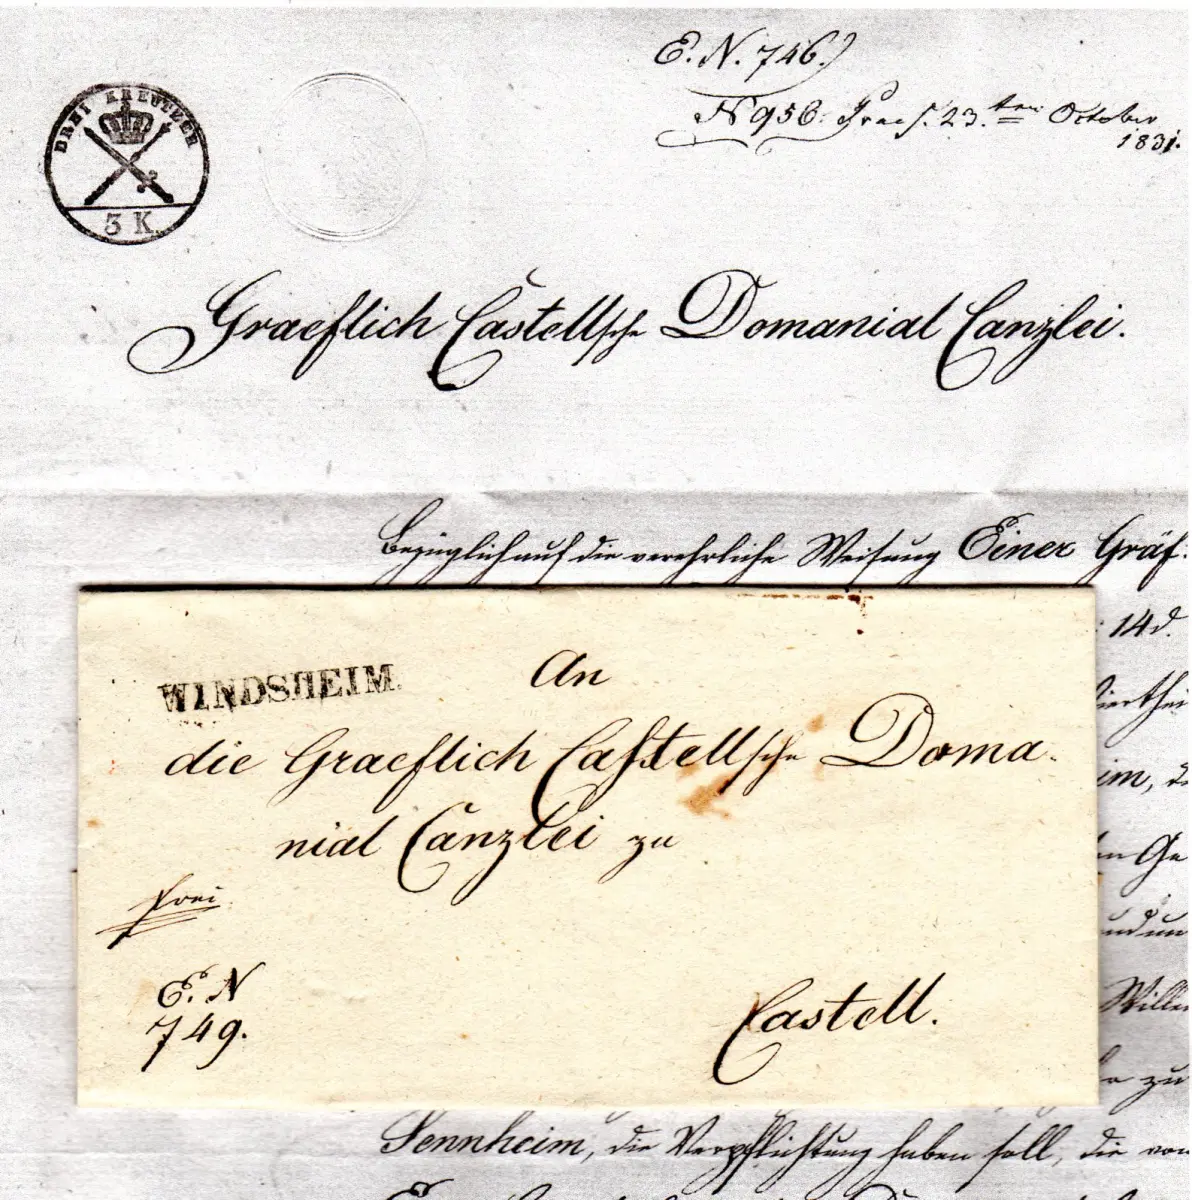 E. N. 746.)
N 956. Praes. 23.ten October
1831.
DREI KREUTZER
3 K
Graeflich Castellsche Domanial Canzlei.
Bezüglich auf die verehrliche Weisung Einer Gräf.
14 d.
WINDSHEIM.
An
die Graeflich Castellsche Doma-
nial Canzlei zu
frei
E. N
749.
Castell.
zu
Sennheim, die Verpflichtung haben soll, die von